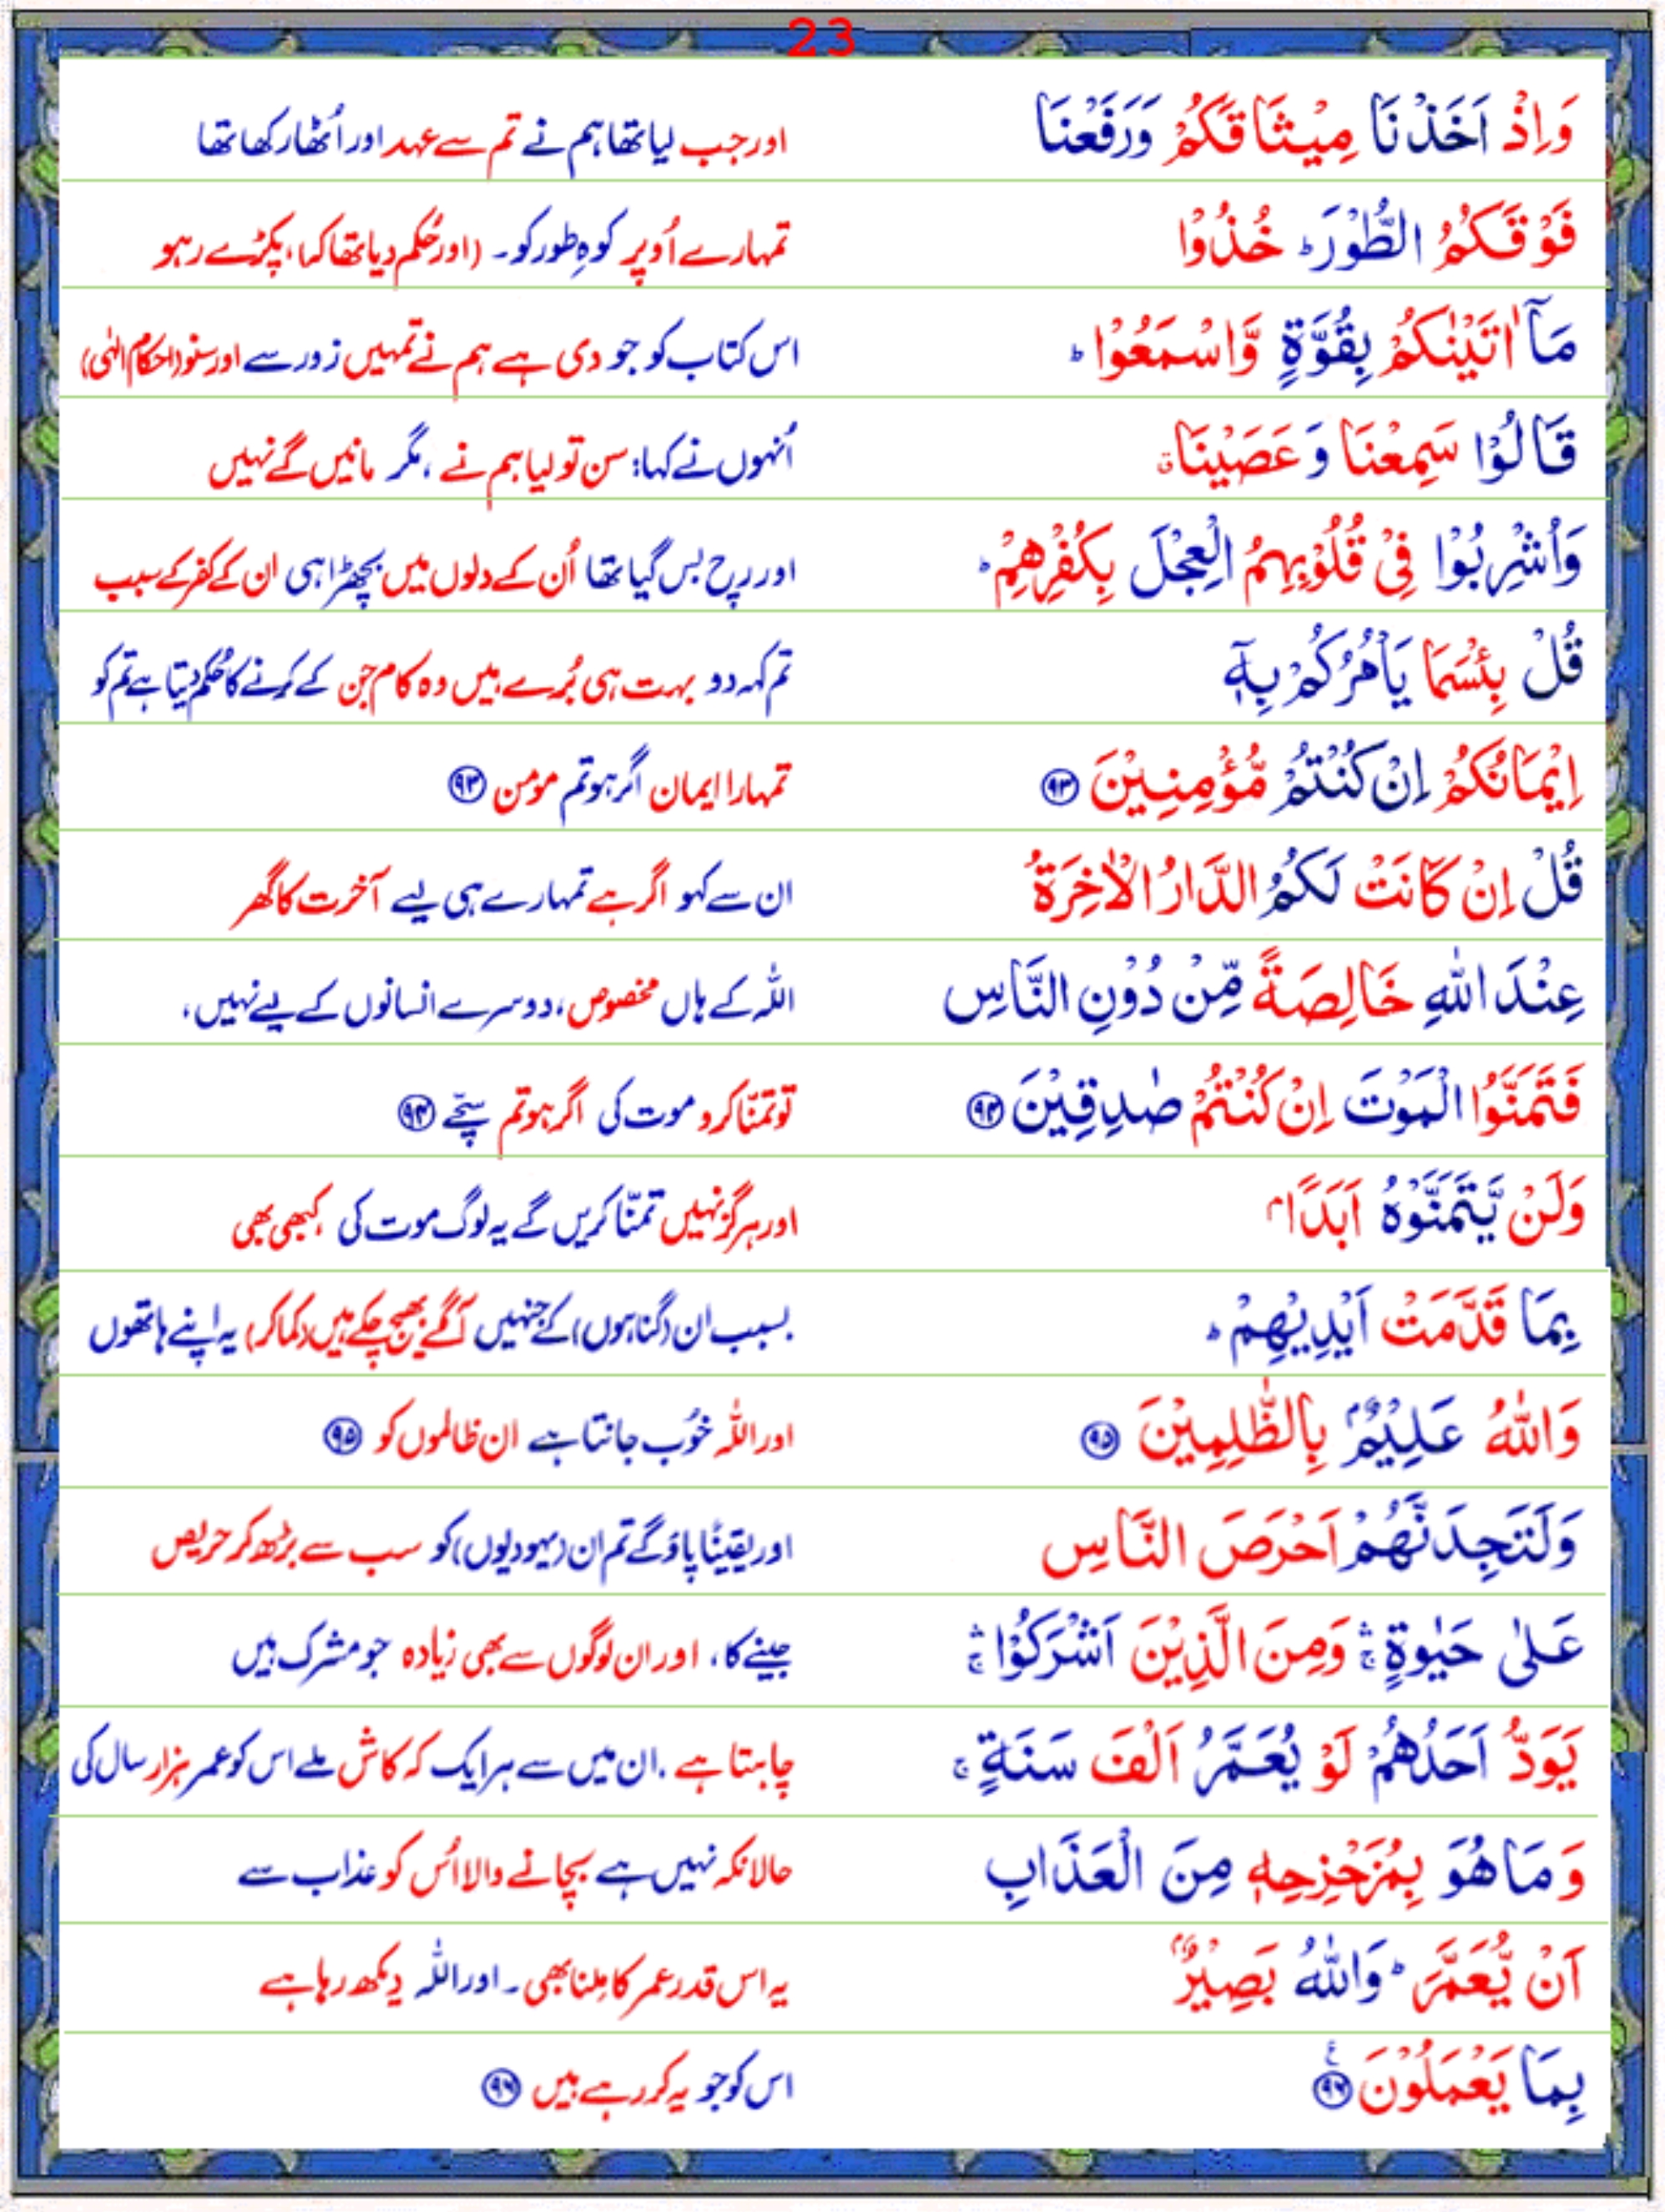 23
وَاِذْ اَخَذْنَا مِيْثَاقَكُمْ وَرَفَعْنَا
اور جب لیا تھا ہم نے تم سے عہد اور اُٹھا رکھا تھا
فَوْقَكُمُ الطُّوْرَ ؕ خُذُوْا
تمہارے اُوپر کوہِ طور کو۔ (اور حُکم دیا تھا کہ، پکڑے رہو
مَاۤ اٰتَيْنٰكُمْ بِقُوَّةٍ وَّاسْمَعُوْا ؕ
اس کتاب کو جو دی ہے ہم نے تمہیں زور سے اور سنو (احکامِ الٰہی)
قَالُوْا سَمِعْنَا وَعَصَيْنَا ۗ
اُنہوں نے کہا: سن تو لیا ہم نے ، مگر مانیں گے نہیں
وَاُشْرِبُوْا فِيْ قُلُوْبِهِمُ الْعِجْلَ بِكُفْرِهِمْ ؕ
اور رچ بس گیا تھا اُن کے دلوں میں بچھڑا ہی ان کے کفر کے سبب
قُلْ بِئْسَمَا يَاْمُرُكُمْ بِهٖۤ
تم کہہ دو بہت ہی بُرے ہیں وہ کام جن کے کرنے کا حُکم دیتا ہے تم کو
اِيْمَانُكُمْ اِنْ كُنْتُمْ مُّؤْمِنِيْنَ ۹۳
تمہارا ایمان اگر ہو تم مومن ۹۳
قُلْ اِنْ كَانَتْ لَكُمُ الدَّارُ الْاٰخِرَةُ
ان سے کہو اگر ہے تمہارے ہی لیے آخرت کا گھر
عِنْدَ اللّٰهِ خَالِصَةً مِّنْ دُوْنِ النَّاسِ
اللّٰہ کے ہاں مخصوص ، دوسرے انسانوں کے لیے نہیں ،
فَتَمَنَّوُا الْمَوْتَ اِنْ كُنْتُمْ صٰدِقِيْنَ ۹۴
تو تمنّا کرو موت کی اگر ہو تم سچّے ۹۴
وَلَنْ يَّتَمَنَّوْهُ اَبَدًاۢ
اور ہرگز نہیں تمنّا کریں گے یہ لوگ موت کی کبھی بھی
بِمَا قَدَّمَتْ اَيْدِيْهِمْ ؕ
بسبب ان (گناہوں) کے جنہیں آگے بھیج چکے ہیں (کما کر) یہ اپنے ہاتھوں
وَاللّٰهُ عَلِيْمٌۢ بِالظّٰلِمِيْنَ ۹۵
اور اللّٰہ خُوب جانتا ہے ان ظالموں کو ۹۵
وَلَتَجِدَنَّهُمْ اَحْرَصَ النَّاسِ
اور یقیناً پاؤ گے تم ان (یہودیوں) کو سب سے بڑھ کر حریص
عَلٰى حَيٰوةٍ ۛۚ وَمِنَ الَّذِيْنَ اَشْرَكُوْا ۛۚ
جینے کا ، اور ان لوگوں سے بھی زیادہ جو مشرک ہیں
يَوَدُّ اَحَدُهُمْ لَوْ يُعَمَّرُ اَلْفَ سَنَةٍ ۚ
چاہتا ہے . ان میں سے ہر ایک کہ کاش ملے اس کو عمر ہزار سال کی
وَمَا هُوَ بِمُزَحْزِحِهٖ مِنَ الْعَذَابِ
حالانکہ نہیں ہے بچانے والا اُس کو عذاب سے
اَنْ يُّعَمَّرَ ؕ وَاللّٰهُ بَصِيْرٌۢ
یہ اس قدر عمر کا مِلنا بھی ۔ اور اللّٰہ دیکھ رہا ہے
بِمَا يَعْمَلُوْنَ ۹۶ ع
اس کو جو یہ کر رہے ہیں ۹۶